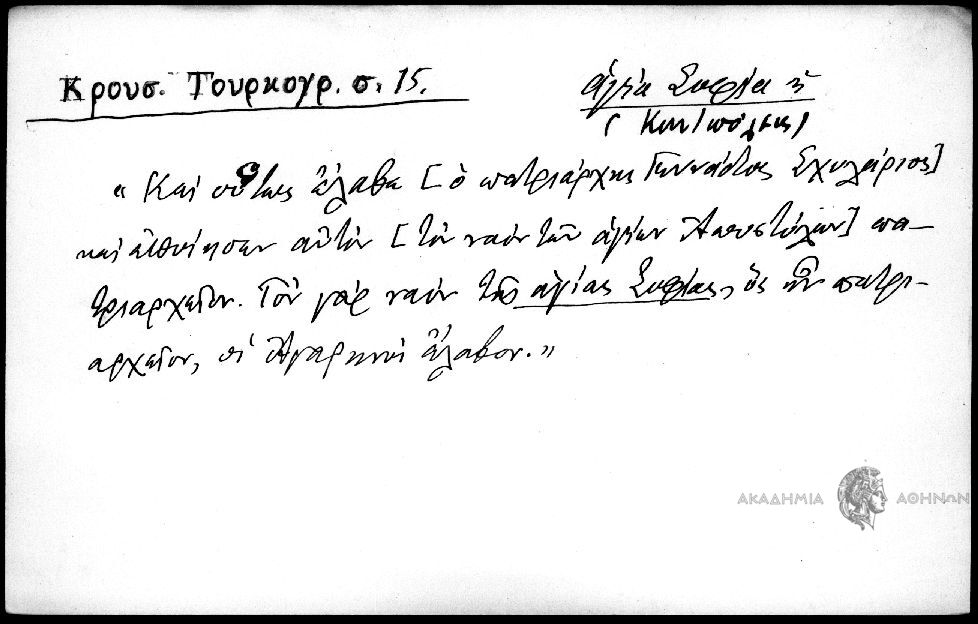 Κρουσ. Τουρκογρ. σ. 15.
ἁγία Σοφία ἡ
(Κων/πόλεως)
« Καὶ οὕτως ἔλαβε [ὁ πατριάρχης Γεννάδιος Σχολάριος]
καὶ ἐποίησεν αὐτὸν [τὸν ναὸν τῶν ἁγίων Ἀποστόλων] πα-
τριαρχεῖον. Τὸν γὰρ ναὸν τῆς ἁγίας Σοφίας, ὃς ἦν πατρι-
αρχεῖον, οἱ Ἀγαρηνοὶ ἔλαβον.»
ΑΚΑΔΗΜΙΑ ΑΘΗΝΩΝ